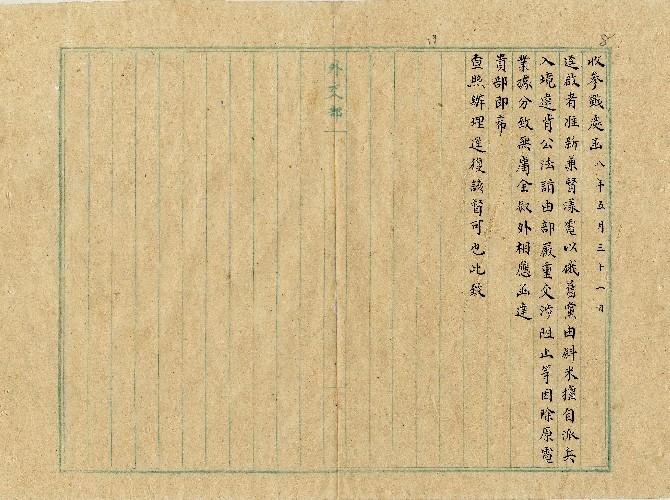 收參戰處函 八年五月三十一日
逕啟者准新兼督漾電以俄舊黨由斜米擅自派兵
入境違背公法請由部嚴重交涉阻止等因除原電
業據分致無庸全敘外相應函達
貴部即希
查照辦理逕復該督可也此致
外交部